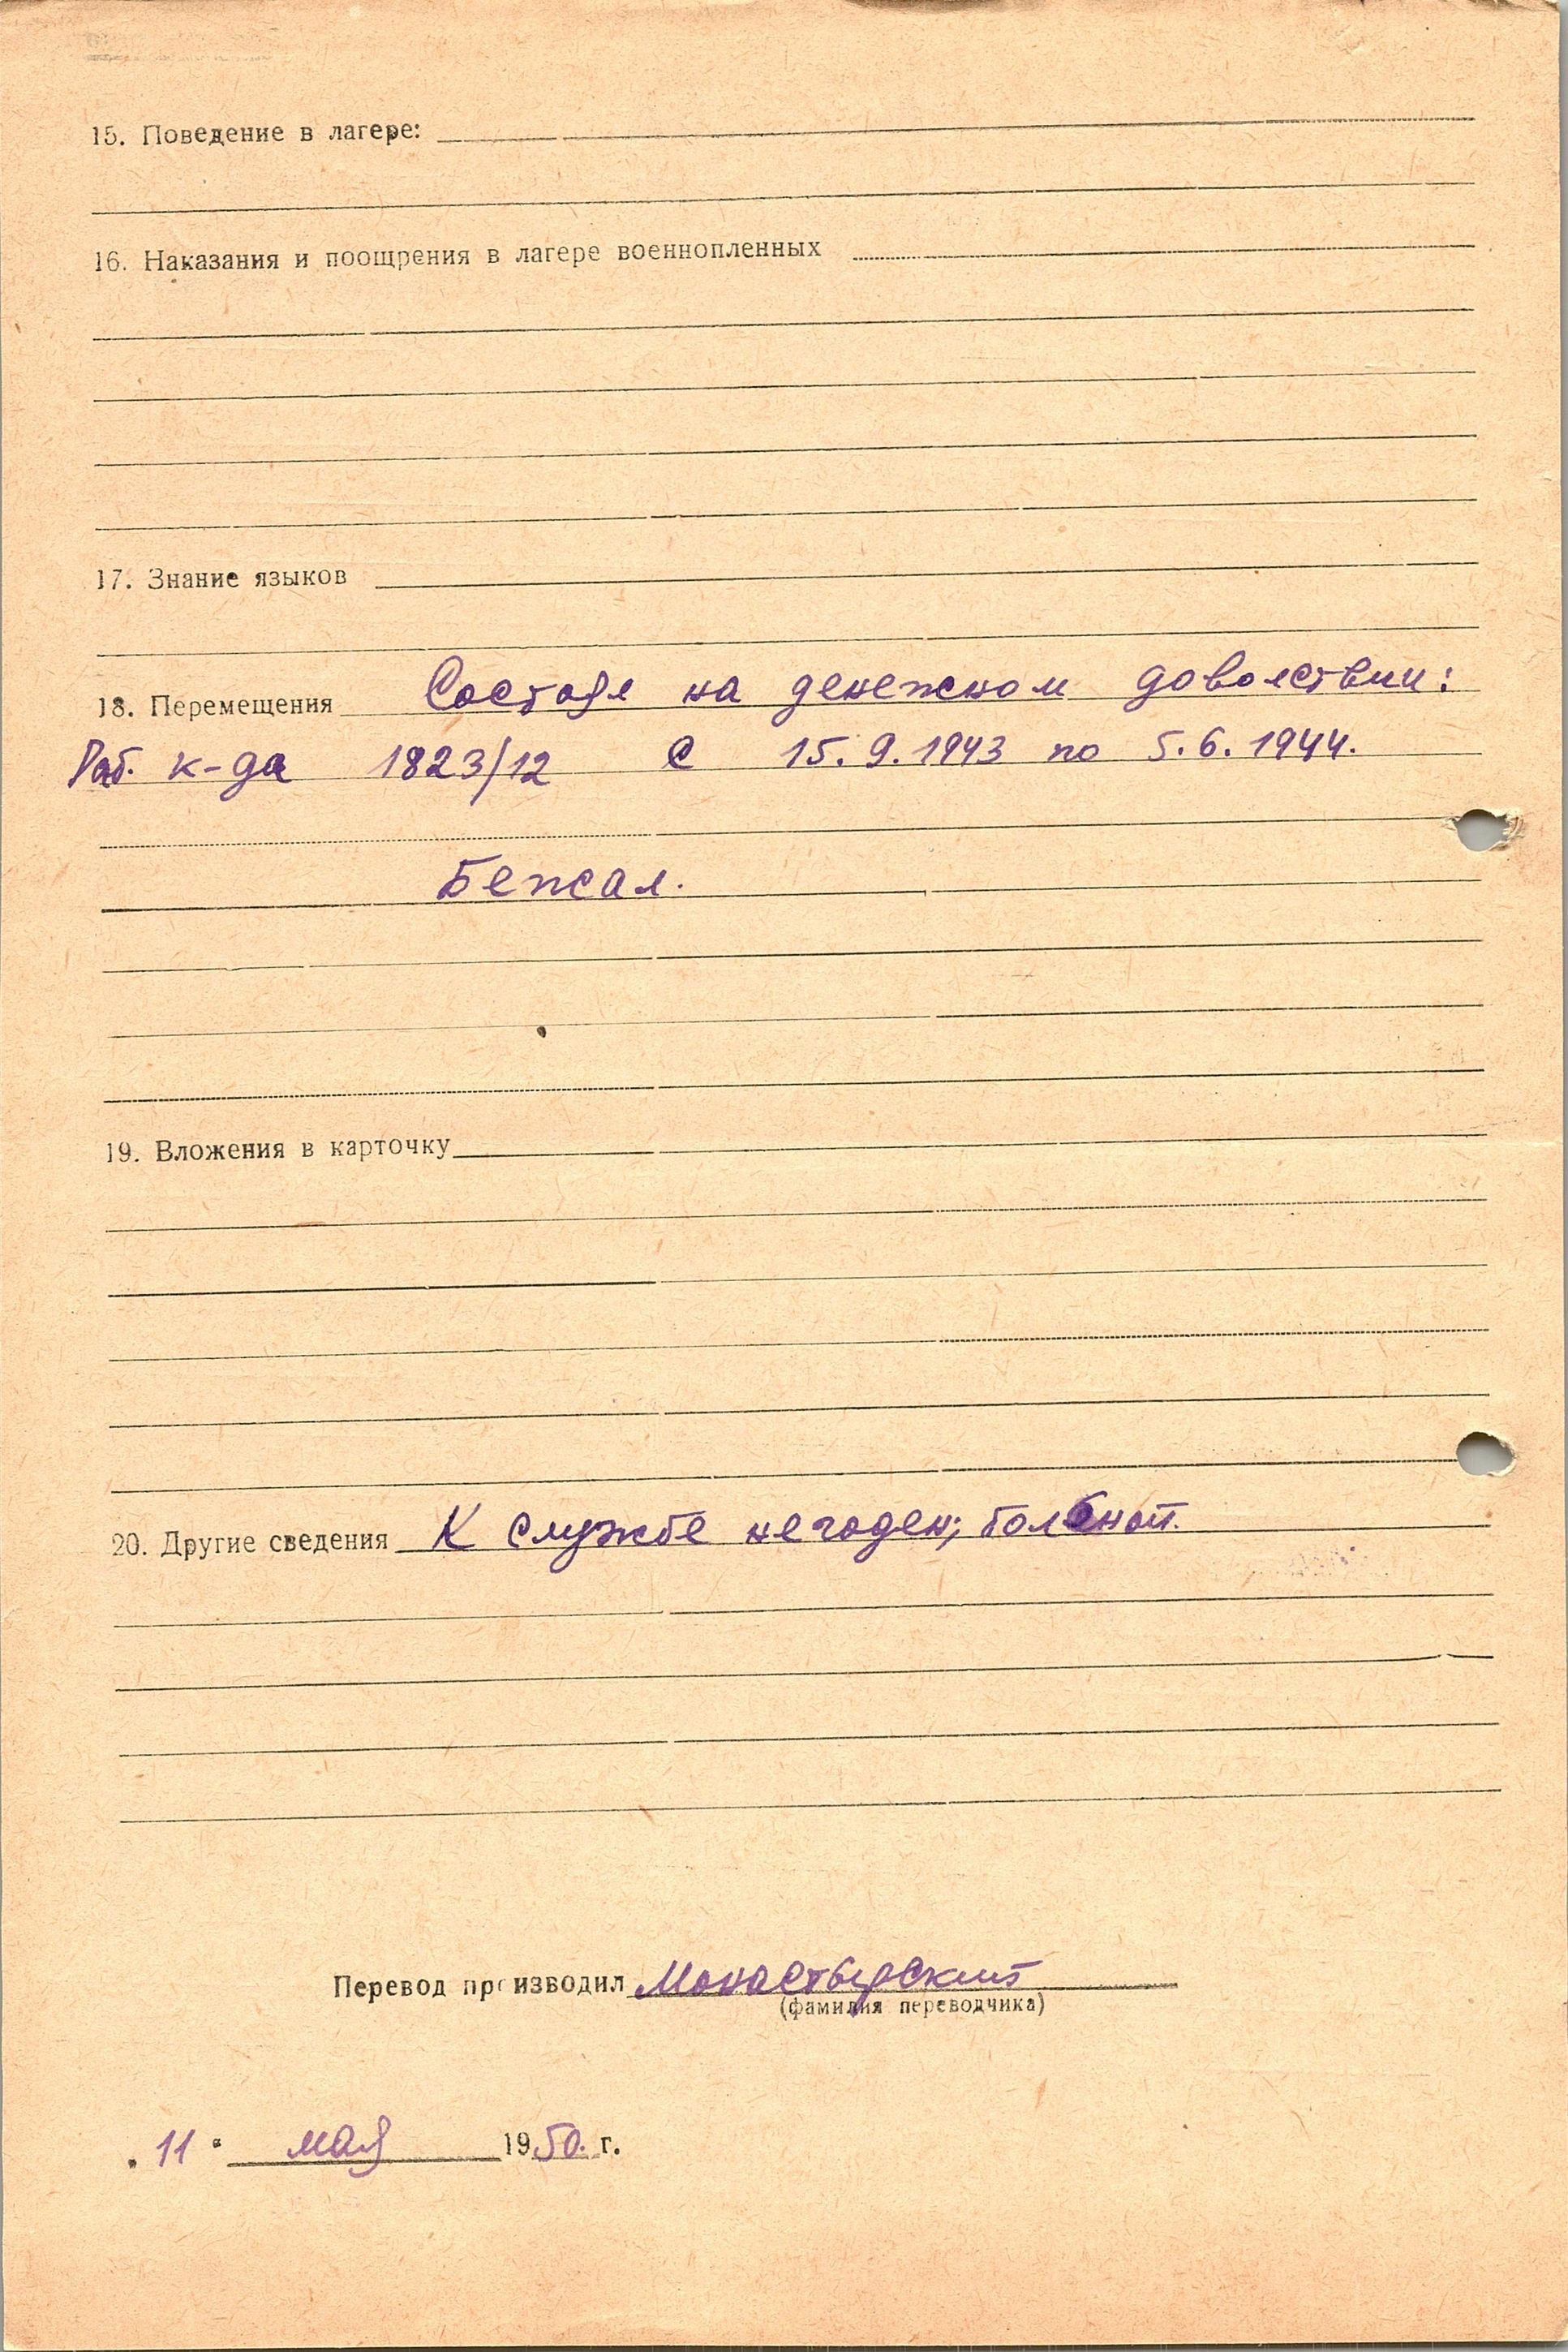 15. Поведение в лагере:
16. Наказания и поощрения в лагере военнопленных
17. Знание языков
18. Перемещения Состоял на денежном доволствии:
Раб. к-да 1823/12 С 15.9.1943 по 5.6.1944.
Бежал.
19. Вложения в карточку
20. Другие сведения К службе не годен; больной.
Перевод производил Монастырский
(фамилия переводчика)
„11" мая 1950. г.